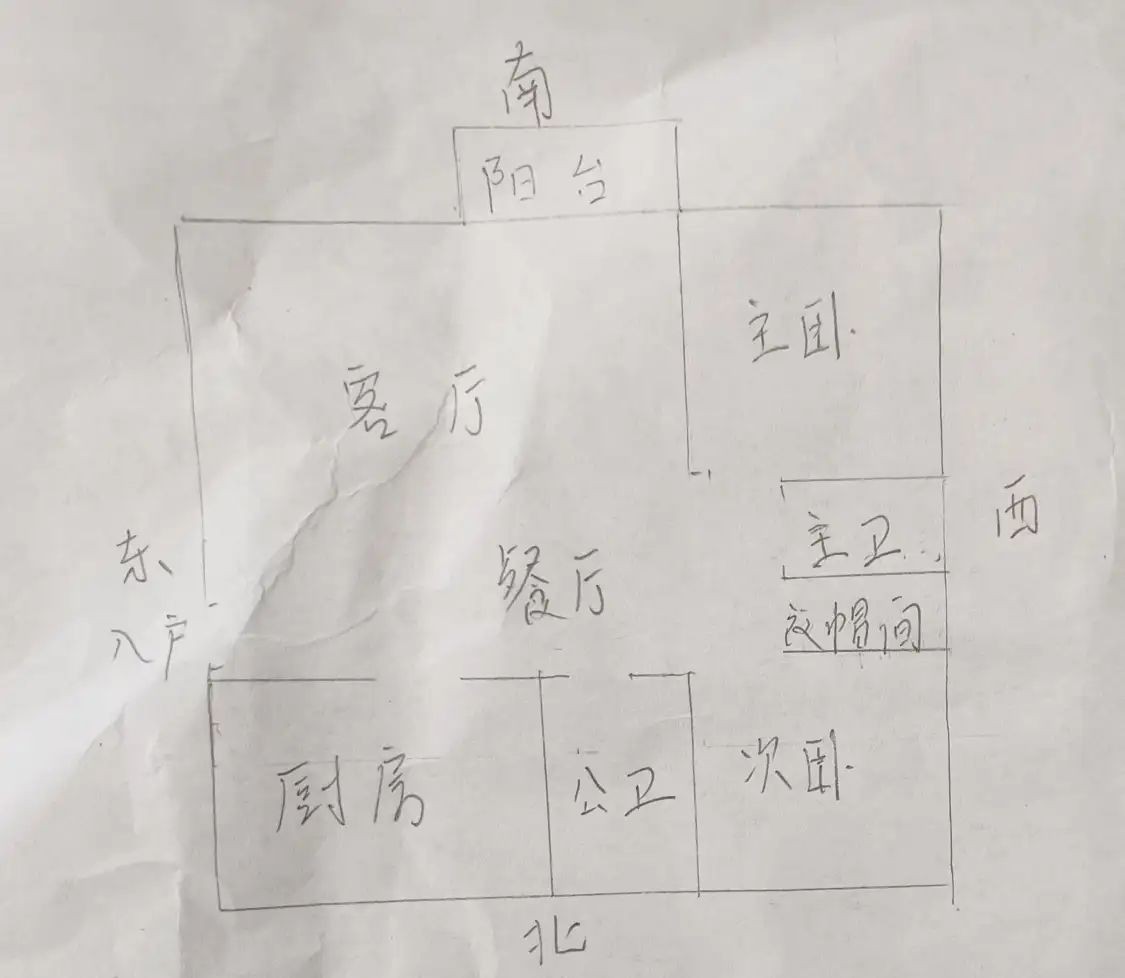 南
阳台
主卧
客厅
西
东
主卫
餐厅
入户
衣帽间
厨房
公卫
次卧
北